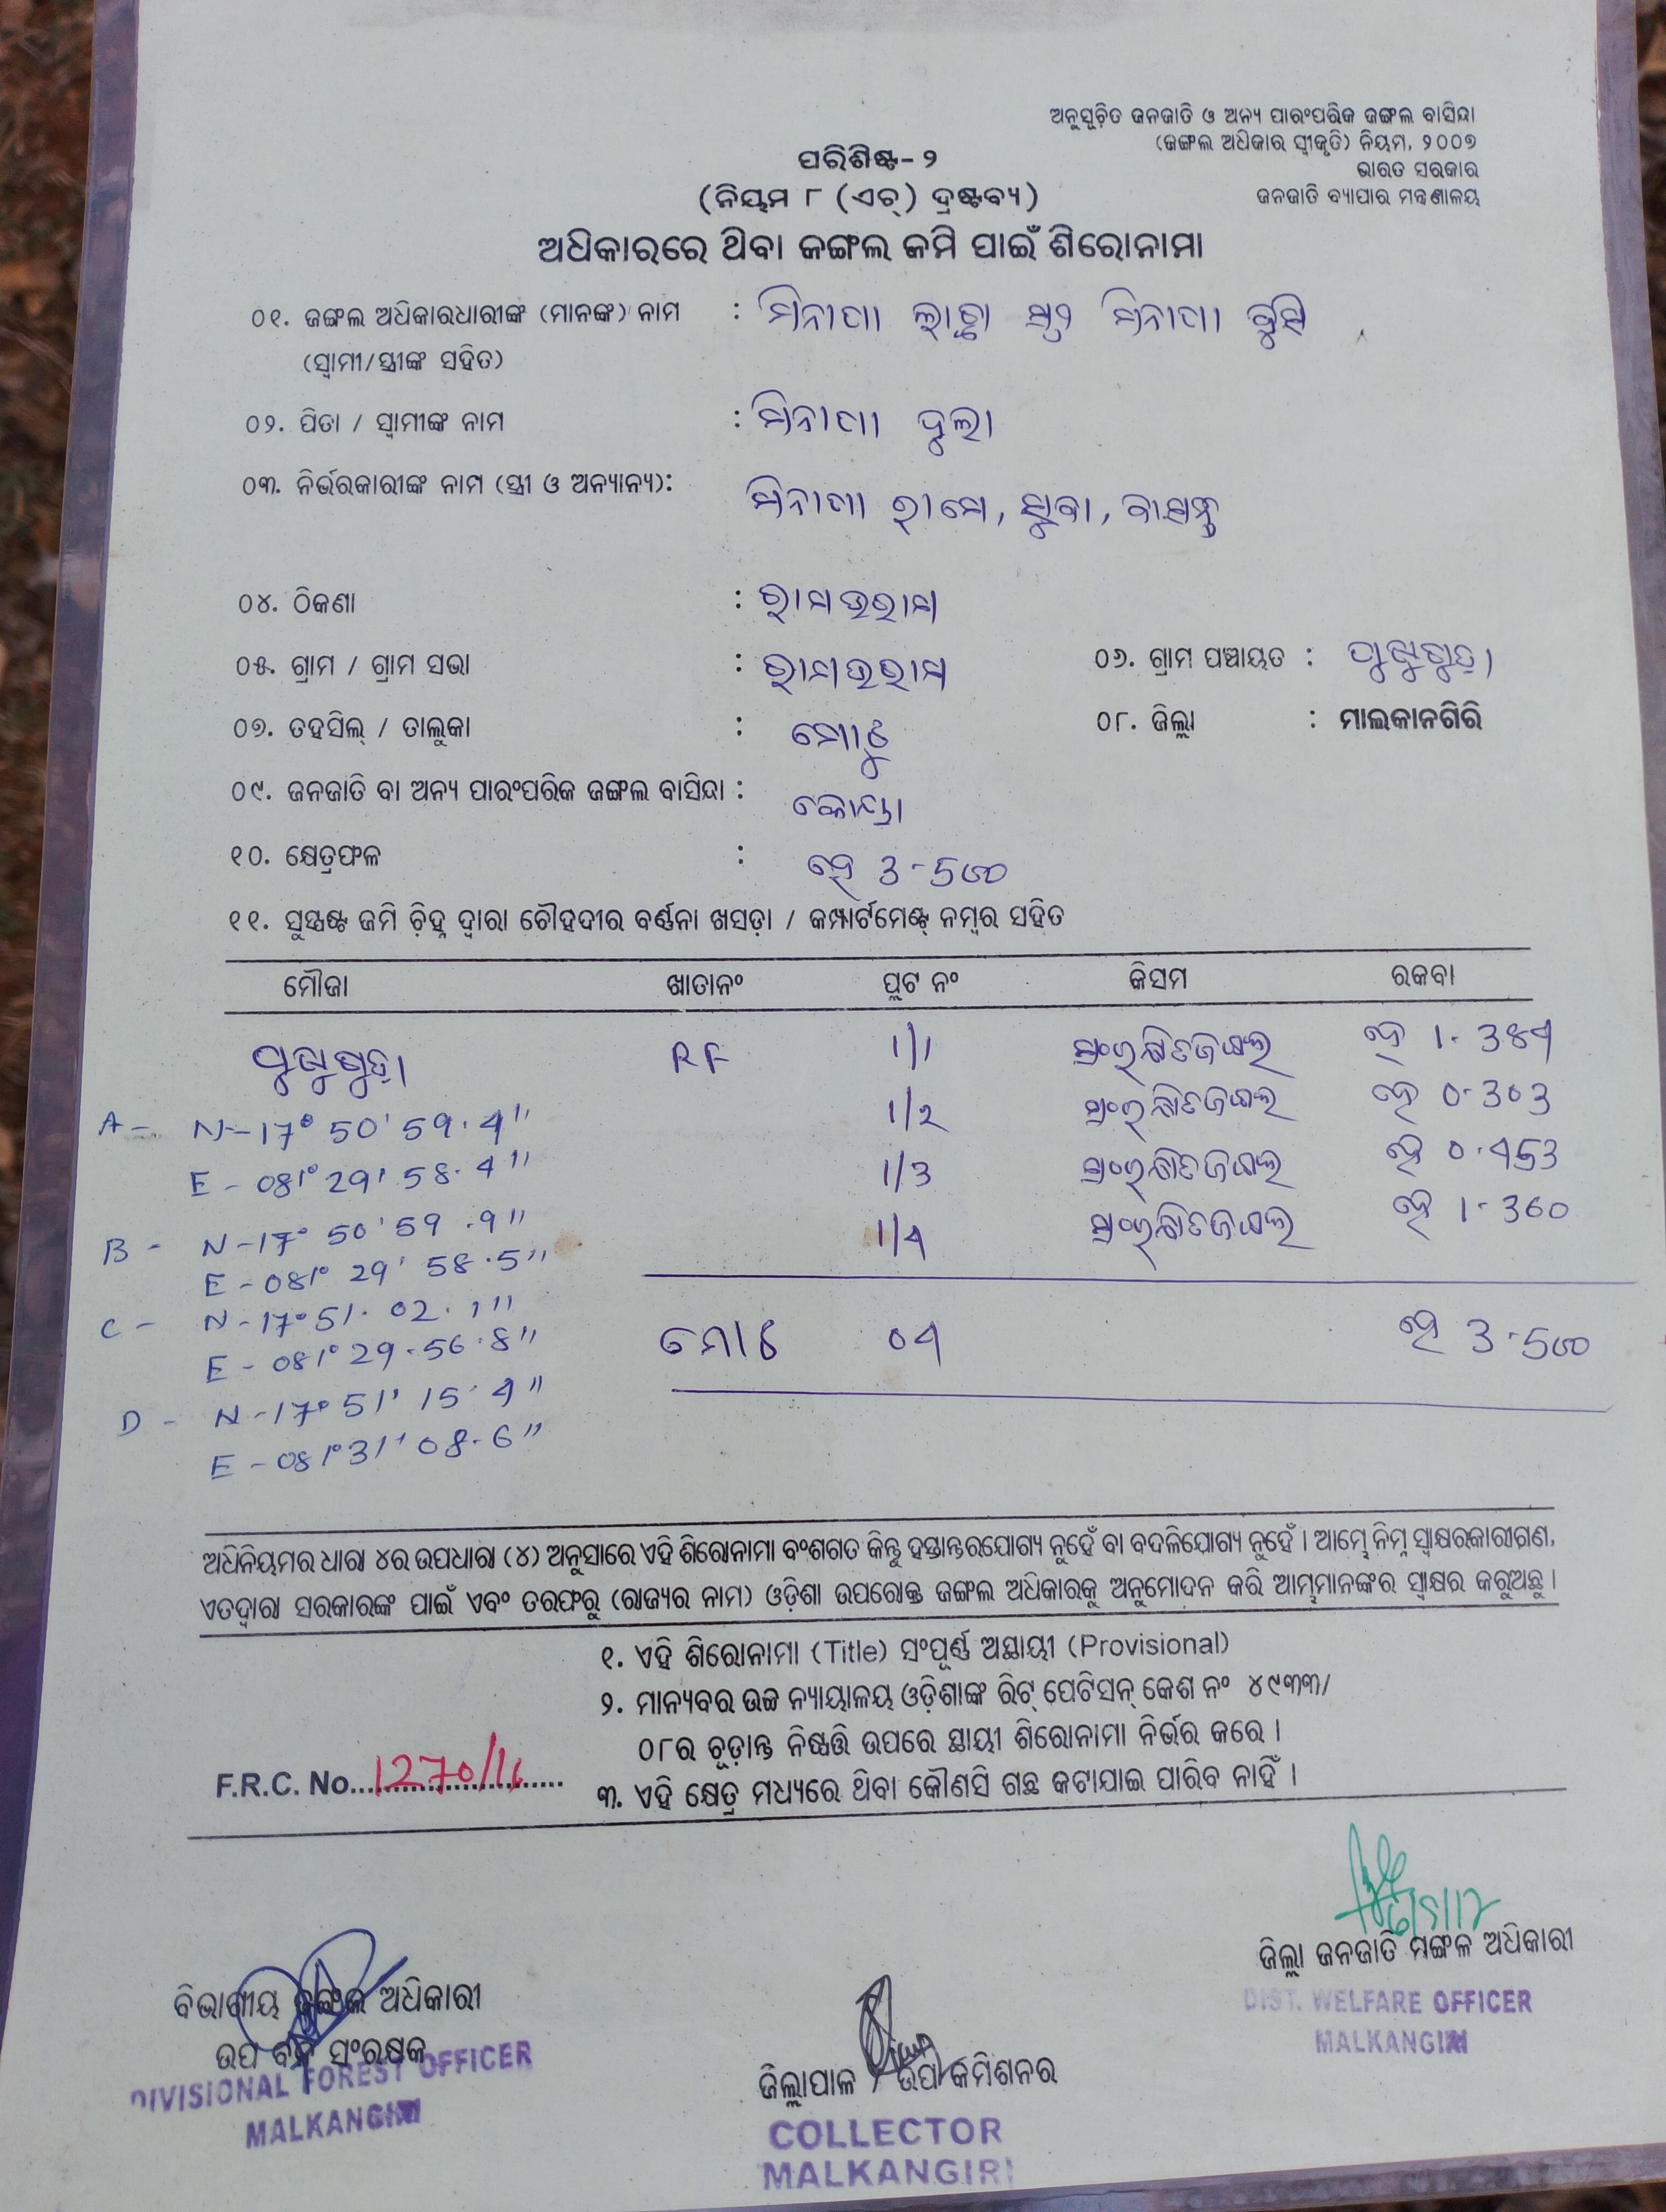 ଅନୁସୂଚିତ ଜନଜାତି ଓ ଅନ୍ୟ ପାରଂପରିକ ଜଙ୍ଗଲ ବାସିନ୍ଦା
(ଜଙ୍ଗଲ ଅଧିକାର ସ୍ୱୀକୃତି) ନିୟମ, ୨୦୦୭
ଭାରତ ସରକାର
ଜନଜାତି ବ୍ୟାପାର ମନ୍ତ୍ରଣାଳୟ
ପରିଶିଷ୍ଟ-୨
(ନିୟମ ୮ (ଏଚ୍) ଦ୍ରଷ୍ଟବ୍ୟ)
ଅଧିକାରରେ ଥିବା ଜଙ୍ଗଲ ଜମି ପାଇଁ ଶିରୋନାମା
୦୧. ଜଙ୍ଗଲ ଅଧିକାରଧାରୀଙ୍କ (ମାନଙ୍କ) ନାମ :
(ସ୍ୱାମୀ/ସ୍ତ୍ରୀଙ୍କ ସହିତ)
୦୨. ପିତା / ସ୍ୱାମୀଙ୍କ ନାମ :
୦୩. ନିର୍ଭରକାରୀଙ୍କ ନାମ (ସ୍ତ୍ରୀ ଓ ଅନ୍ୟାନ୍ୟ):
୦୪. ଠିକଣା :
୦୫. ଗ୍ରାମ / ଗ୍ରାମ ସଭା : ୦୬. ଗ୍ରାମ ପଞ୍ଚାୟତ :
୦୭. ତହସିଲ୍ / ତାଲୁକା : ମୋଟୁ ୦୮. ଜିଲ୍ଲା : ମାଲକାନଗିରି
୦୯. ଜନଜାତି ବା ଅନ୍ୟ ପାରଂପରିକ ଜଙ୍ଗଲ ବାସିନ୍ଦା : କୋୟା
୧୦. କ୍ଷେତ୍ରଫଳ : ହେ 3-500
୧୧. ସୁସ୍ପଷ୍ଟ ଜମି ଚିହ୍ନ ଦ୍ୱାରା ଚୌହଦୀର ବର୍ଣ୍ଣନା ଖସଡ଼ା / କମ୍ପାର୍ଟମେଣ୍ଟ୍ ନମ୍ବର ସହିତ
ମୌଜା ଖାତାନଂ ପ୍ଲଟ ନଂ କିସମ ରକବା
RF 1/1 ସଂରକ୍ଷିତଜଙ୍ଗଲ ହେ 1.384
1/2 ସଂରକ୍ଷିତଜଙ୍ଗଲ ହେ 0.303
1/3 ସଂରକ୍ଷିତଜଙ୍ଗଲ ହେ 0.453
1/4 ସଂରକ୍ଷିତଜଙ୍ଗଲ ହେ 1.360
A - N-17° 50' 59.4"
E - 081° 29' 58.4"
B - N-17° 50' 59.9"
E - 081° 29' 58.5"
C - N-17° 51. 02.1"
E - 081° 29.56.8"
D - N-17° 51' 15.4"
E - 081° 31' 08.6"
ମୋଟ 04 ହେ 3-500
ଅଧିନିୟମର ଧାରା ୪ର ଉପଧାରା (୪) ଅନୁସାରେ ଏହି ଶିରୋନାମା ବଂଶଗତ କିନ୍ତୁ ହସ୍ତାନ୍ତରଯୋଗ୍ୟ ନୁହେଁ ବା ବଦଳିଯୋଗ୍ୟ ନୁହେଁ । ଆମ୍ଭେ ନିମ୍ନ ସ୍ୱାକ୍ଷରକାରୀଗଣ,
ଏତଦ୍ୱାରା ସରକାରଙ୍କ ପାଇଁ ଏବଂ ତରଫରୁ (ରାଜ୍ୟର ନାମ) ଓଡ଼ିଶା ଉପରୋକ୍ତ ଜଙ୍ଗଲ ଅଧିକାରକୁ ଅନୁମୋଦନ କରି ଆମ୍ଭମାନଙ୍କର ସ୍ୱାକ୍ଷର କରୁଅଛୁ ।
୧. ଏହି ଶିରୋନାମା (Title) ସଂପୂର୍ଣ୍ଣ ଅସ୍ଥାୟୀ (Provisional)
୨. ମାନ୍ୟବର ଉଚ୍ଚ ନ୍ୟାୟାଳୟ ଓଡ଼ିଶାଙ୍କ ରିଟ୍ ପେଟିସନ୍ କେଶ ନଂ ୪୯୩୩/
୦୮ର ଚୂଡ଼ାନ୍ତ ନିଷ୍ପତ୍ତି ଉପରେ ସ୍ଥାୟୀ ଶିରୋନାମା ନିର୍ଭର କରେ ।
୩. ଏହି କ୍ଷେତ୍ର ମଧ୍ୟରେ ଥିବା କୌଣସି ଗଛ କଟାଯାଇ ପାରିବ ନାହିଁ ।
F.R.C. No. 1270/11
ଜିଲ୍ଲା ଜନଜାତି ମଙ୍ଗଳ ଅଧିକାରୀ
DIST. WELFARE OFFICER
MALKANGIRI
ବିଭାଗୀୟ ଜଙ୍ଗଲ ଅଧିକାରୀ
ଉପ ବନ ସଂରକ୍ଷକ
DIVISIONAL FOREST OFFICER
MALKANGIRI
ଜିଲ୍ଲାପାଳ / ଉପ କମିଶନର
COLLECTOR
MALKANGIRI